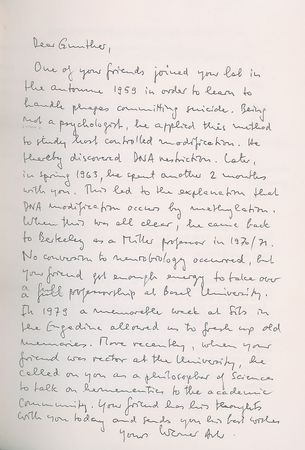 Dear Gunther,
One of your friends joined your lab in
the automne 1959 in order to learn to
handle phages committing suicide. Being
not a psychologist, he applied this method
to study host controlled modification. He
thereby discovered DNA restriction. Later,
in spring 1963, he spent another 2 months
with you. This led to the explanation that
DNA modification occurs by methylation.
When this was all clear, he came back
to Berkeley as a Miller professor in 1970/71.
No conversion to neurobiology occurred, but
your friend got enough energy to take over
a full professorship at Basel University.
In 1979 a memorable week at Sils in
the Engadina allowed us to fresh up old
memories. More recently, when your
friend was rector at the University, he
called on you as a philosopher of Sciences
to talk on hermeneutics to the academic
community. Your friend has his thoughts
with you today and sends you his best wishes
Yours Werner Arber